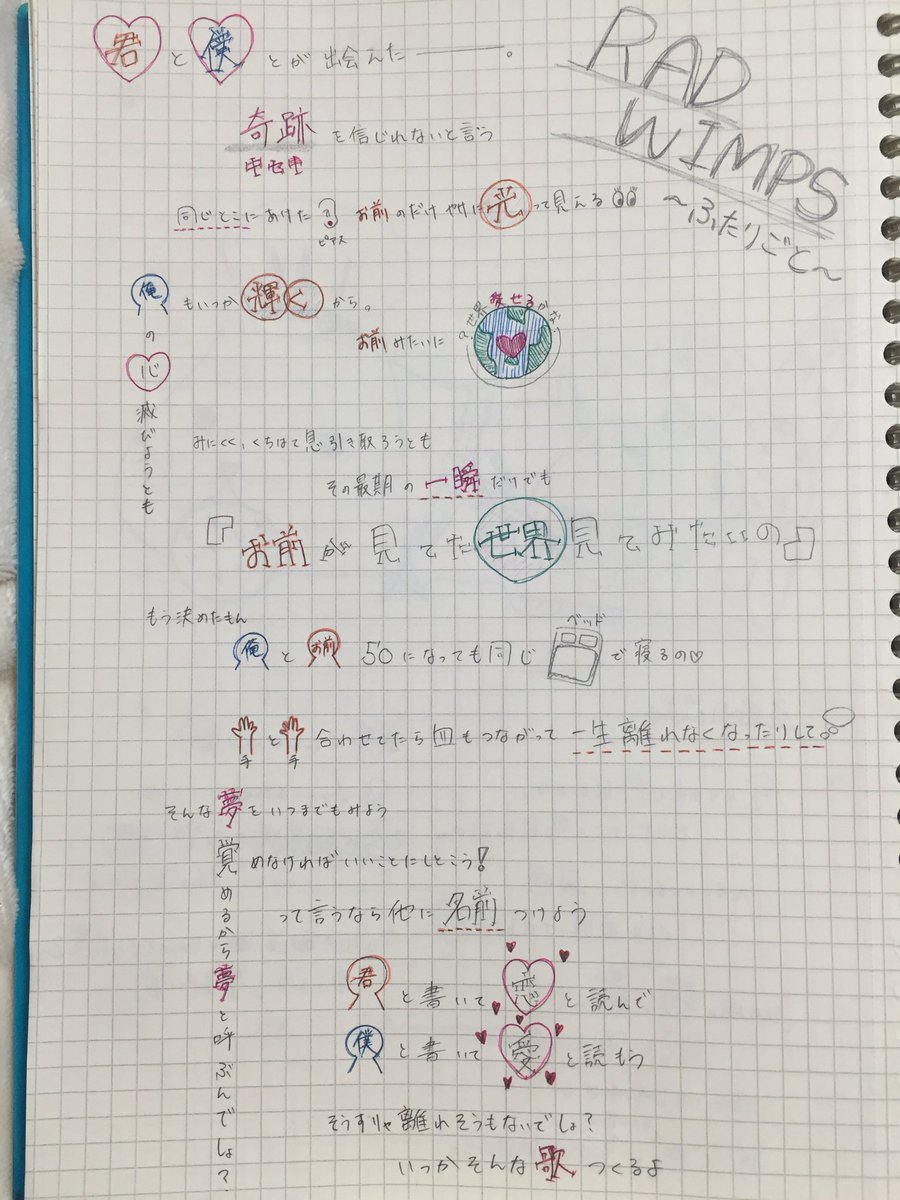 君と僕とが出会えた――。
RAD
WIMPS
〜ふたりごと〜
奇跡を信じれないと言う
キセキ
同じとこにあけた お前のだけやけに光って見える
ピアス
俺もいつか輝くから。
?世界愛せるかな?
お前みたいに
俺の心滅びようとも
みにくく、くちはて息引き取ろうとも
その最期の一瞬だけでも
『お前が見てた世界見てみたいの』
もう決めたもん
ベッド
俺とお前50になっても同じ で寝るの♡
と 合わせてたら血もつながって一生離れなくなったりして
手 手
そんな夢をいつまでもみよう
覚めなければいいことにしとこう!
って言うなら他に名前つけよう
覚めるから夢と呼ぶんでしょ?
君と書いて恋と読んで
僕と書いて愛と読もう
そうすりゃ離れそうもないでしょ?
いつかそんな歌つくるよ